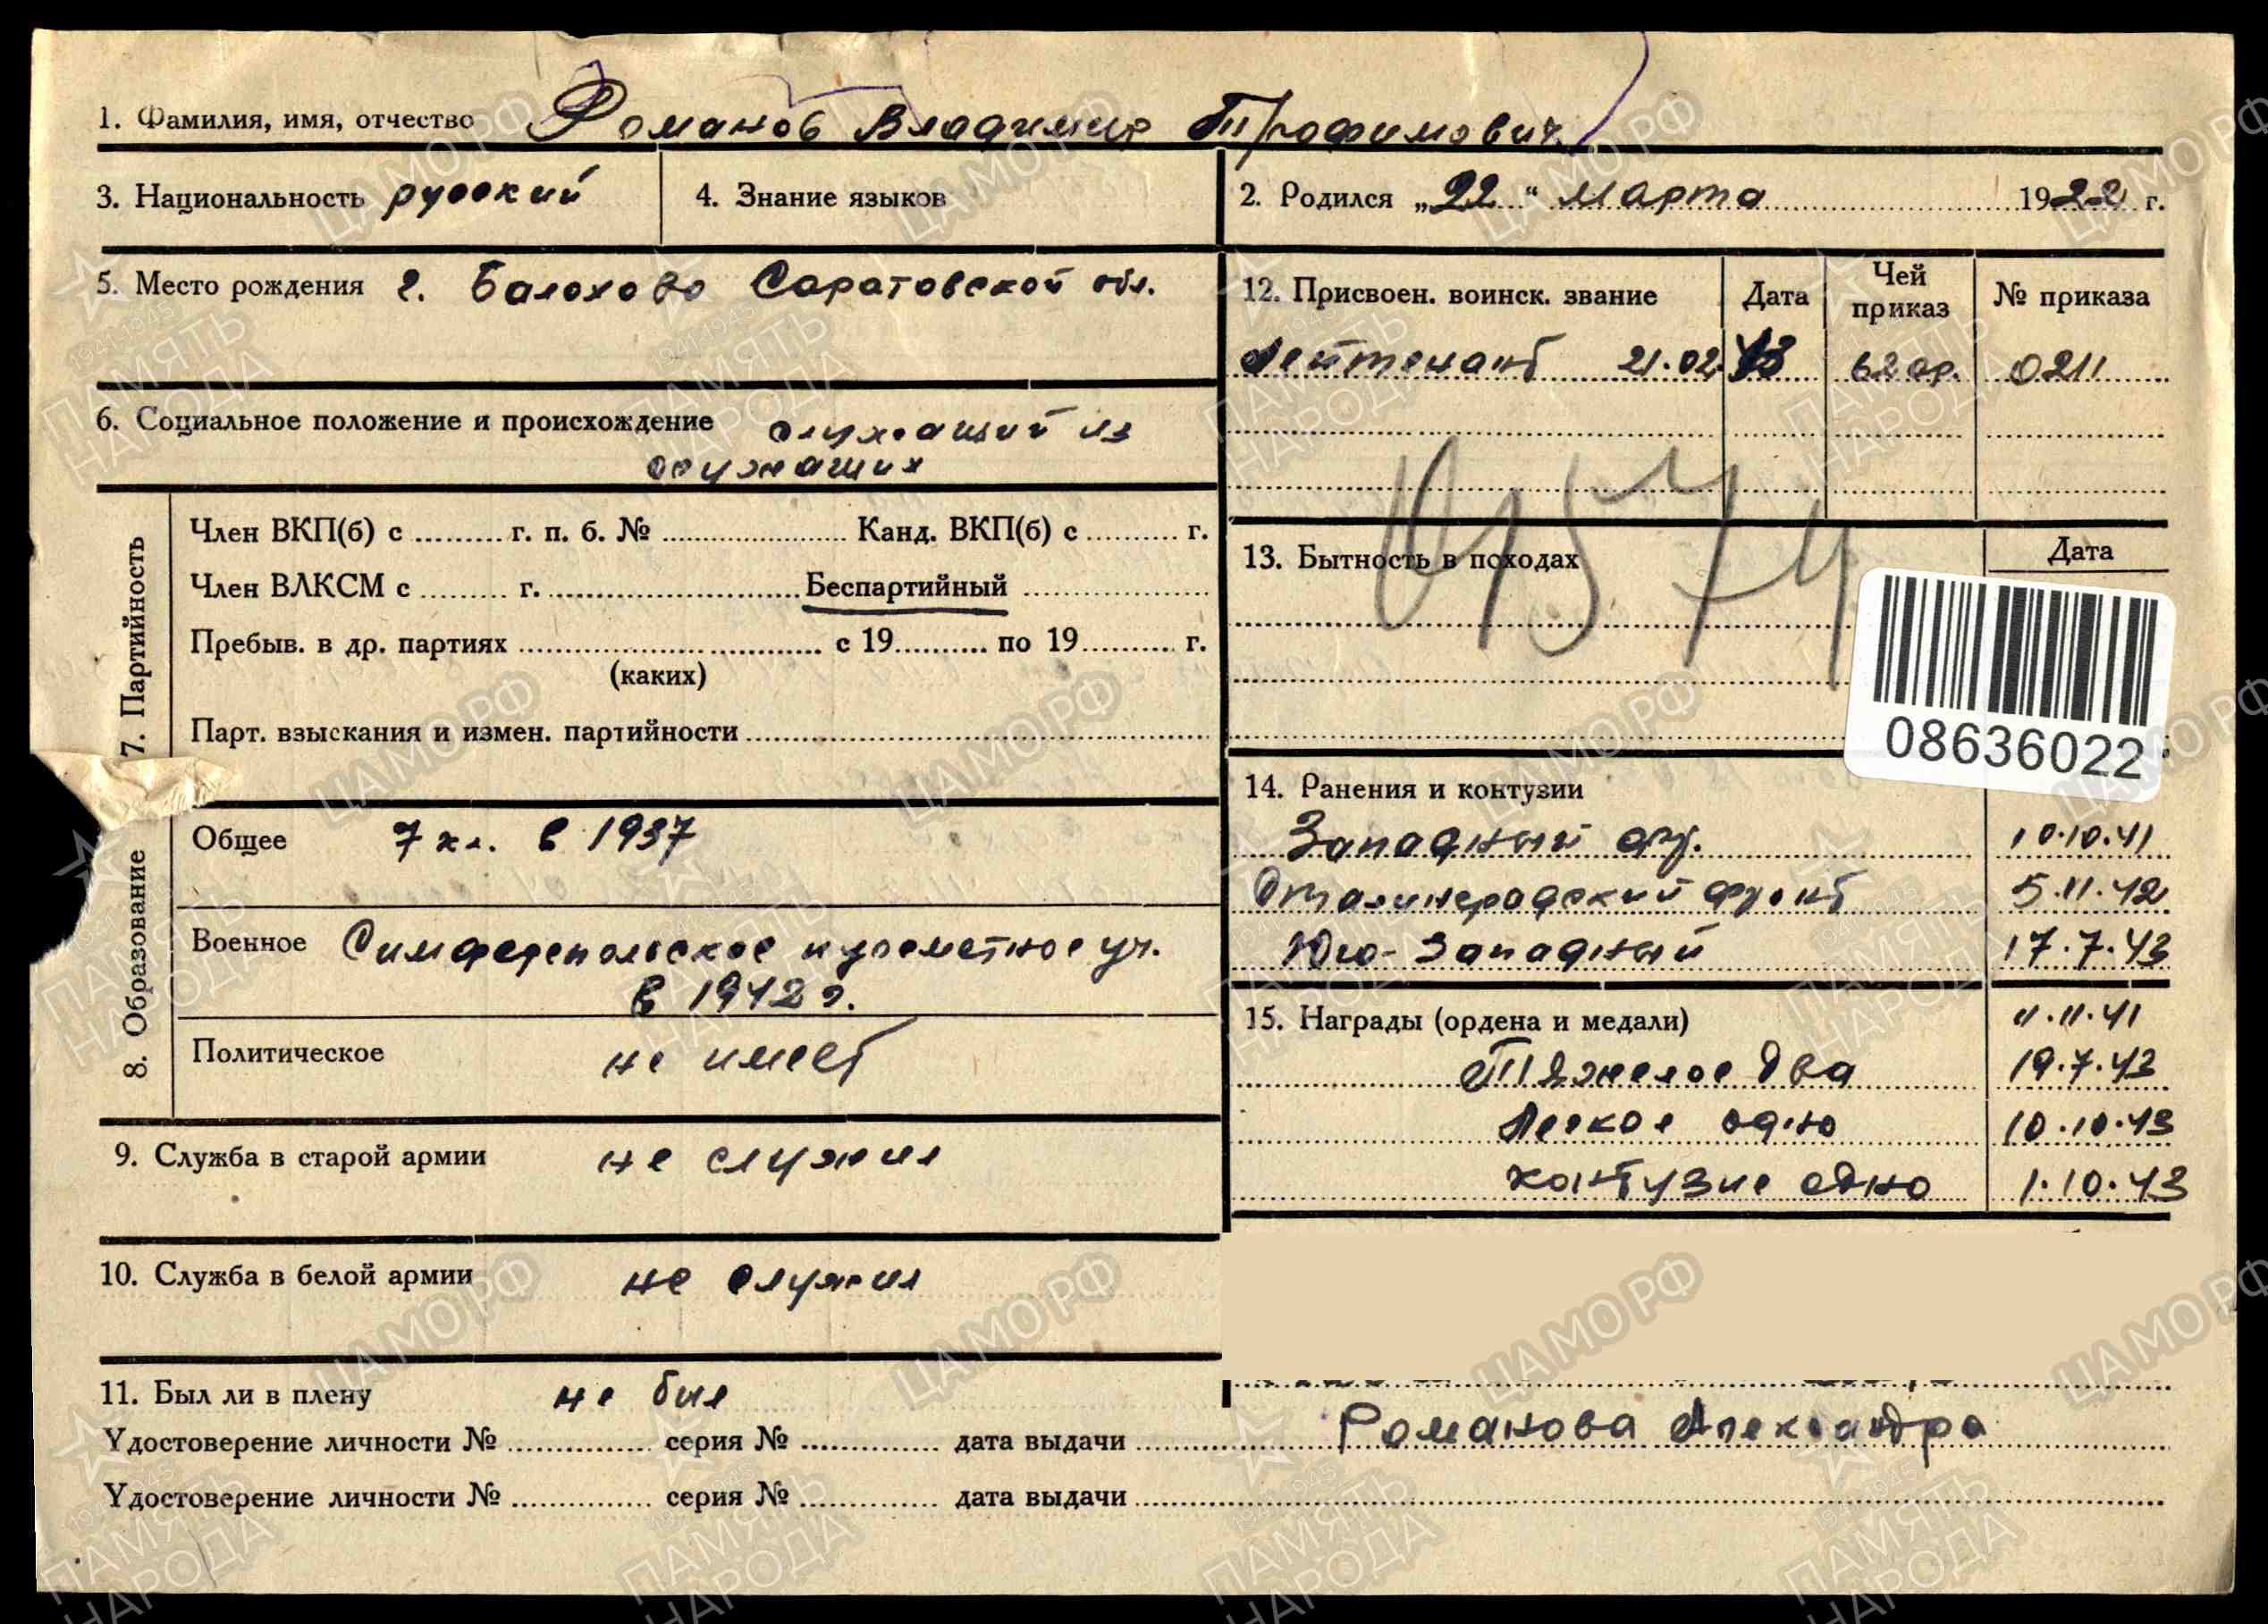 1. Фамилия, имя, отчество Романов Владимир Трофимович
3. Национальность русский 4. Знание языков 2. Родился „22“ марта 1922 г.
5. Место рождения г. Балохово Саратовской обл.
12. Присвоен. воинск. звание Дата Чей приказ № приказа
Лейтенант 21.02.43 62 ар. 0211
6. Социальное положение и происхождение служащий из
служащих
7. Партийность
Член ВКП(б) с ......... г. п. б. № ......... Канд. ВКП(б) с ......... г.
Член ВЛКСМ с ......... г. ......... Беспартийный .........
Пребыв. в др. партиях ......... с 19......... по 19......... г.
(каких)
Парт. взыскания и измен. партийности .........
13. Бытность в походах Дата
08636022
8. Образование
Общее 7 кл. в 1937
Военное Симферопольское пулеметное уч.
в 1942 г.
Политическое не имеет
14. Ранения и контузии
Западный фр. 10.10.41
Сталинградский фронт 5.11.42
Юго-Западный 17.7.43
15. Награды (ордена и медали) 11.11.41
Тяжелое два 19.7.43
Легкое одно 10.10.43
контузие одно 1.10.43
9. Служба в старой армии не служил
10. Служба в белой армии не служил
11. Был ли в плену не был
Удостоверение личности № ......... серия № ......... дата выдачи ......... Романова Александра
Удостоверение личности № ......... серия № ......... дата выдачи .........
ЦАМО.РФ
ПАМЯТЬ НАРОДА
1941-1945